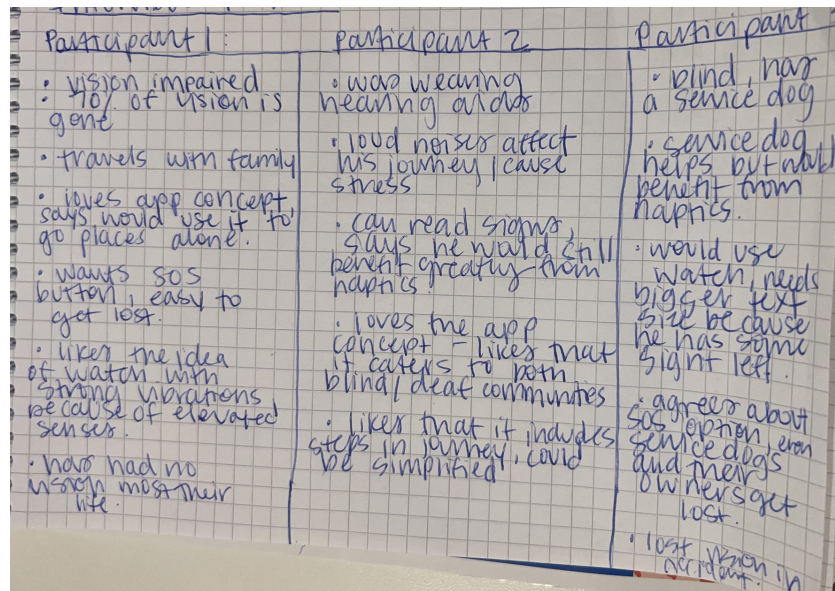 Participant 1:
• vision impaired
• 70% of vision is
gone
• travels with family
• loves app concept,
says would use it to
go places alone.
• wants SOS
button, easy to
get lost.
• likes the idea
of watch with
strong vibrations
because of elevated
senses.
• has had no
vision most their
life.
Participant 2
• was wearing
hearing aids
• loud noises affect
his journey / cause
stress
• can read signs,
says he would still
benefit greatly from
haptics.
• loves the app
concept - likes that
it caters to both
blind/deaf communities
• likes that it includes
steps in journey, could
be simplified
Participant
• blind, has
a service dog
• service dog
helps but would
benefit from
haptics.
• would use
watch, needs
bigger text
size because
he has some
sight left.
• agrees about
SOS option, even
service dogs
and their
owners get
lost.
• lost vision in
accident.